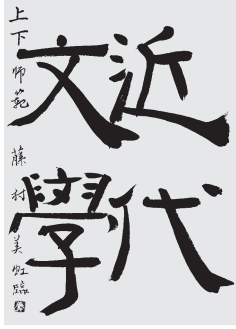 近代
文學
上下師範 藤村美虹臨